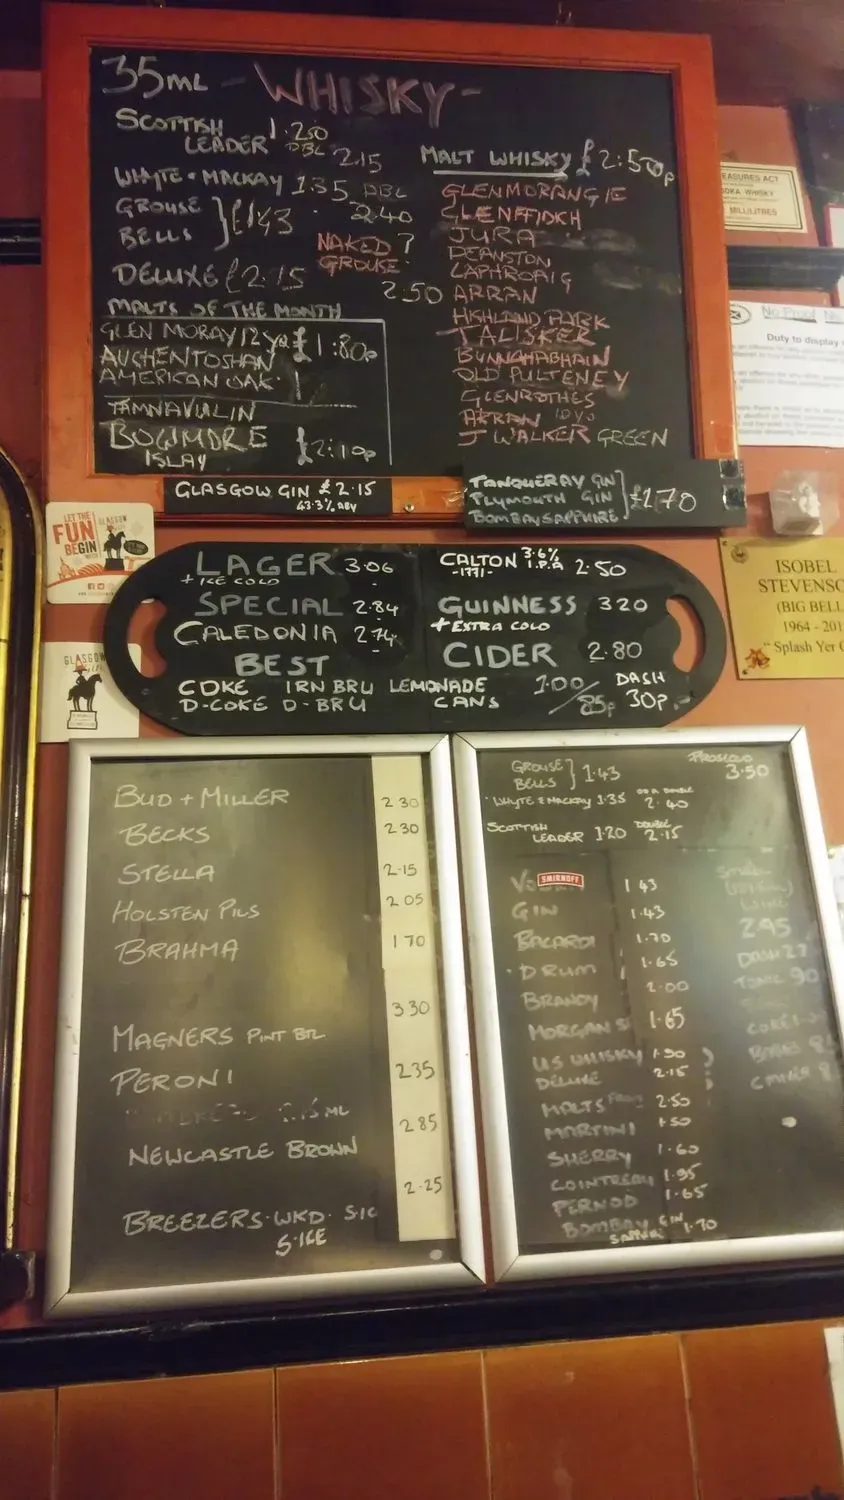 35ML - WHISKY -
SCOTTISH LEADER 1.20 DBL 2.15
WHYTE + MACKAY 1.35 DBL 2.40
GROUSE
BELLS } £1.43
NAKED GROUSE ? 2.50
DELUXE £2.15
MALTS OF THE MONTH
GLEN MORAY 12 YR £1:80p
AUCHENTOSHAN
AMERICAN OAK
TAMNAVULIN
BOGIMORE £2:10p
ISLAY
MALT WHISKY £2:50p
GLENMORANGIE
GLENFFIDICH
JURA
DEANSTON
LAPHROAIG
ARRAN
HIGHLAND PARK
TALISKER
BUNNAHABHAIN
OLD PULTENEY
GLENROTHES
ARRAN 10YO
J WALKER GREEN
GLASGOW GIN £2.15
43.3% ABV
TANQUERAY GIN
PLYMOUTH GIN
BOMBAY SAPPHIRE } £1.70
EASURES ACT
WHISKY
MILLILITRES
No Proof
Duty to display
LET THE
FUN
BEGIN
GLASGOW
GLASGOW
ISOBEL
STEVENSO
(BIG BELL
1964 - 201
"Splash Yer
LAGER 3.06
+ ICE COLD
SPECIAL 2.84
CALEDONIA 2.74
BEST
CALTON 3.6% I.P.A 2.50
-1771-
GUINNESS 320
+ EXTRA COLD
CIDER 2.80
COKE IRN BRU LEMONADE 1.00 DASH
D-COKE D-BRU CANS 85p 30p
BUD + MILLER 2 30
BECKS 2 30
STELLA 2.15
HOLSTEN PILS 2 05
BRAHMA 1 70
MAGNERS PINT BTL 3.30
PERONI 2.35
NEWCASTLE BROWN 2.85
BREEZERS. WKD. S.IC 2.25
S.ICE
GROUSE
BELLS } 1.43
PROSECCO
3.50
WHYTE & MACKAY 1.35 2.40
SCOTTISH LEADER 1.20 DOUBLE 2.15
SMIRNOFF 1 43
GIN 1.43
BACARDI 1.70
D RUM 1.65
BRANDY 2.00
MORGAN S 1.65
US WHISKY 1.90
DELUXE 2.15
MALTS FROM 2.50
MARTINI 1.50
SHERRY 1.60
COINTREAU 1.95
PERNOD 1.65
BOMBAY GIN 1.70
SMALL
WINE
2.95
DASH
TONIC 90
COKE